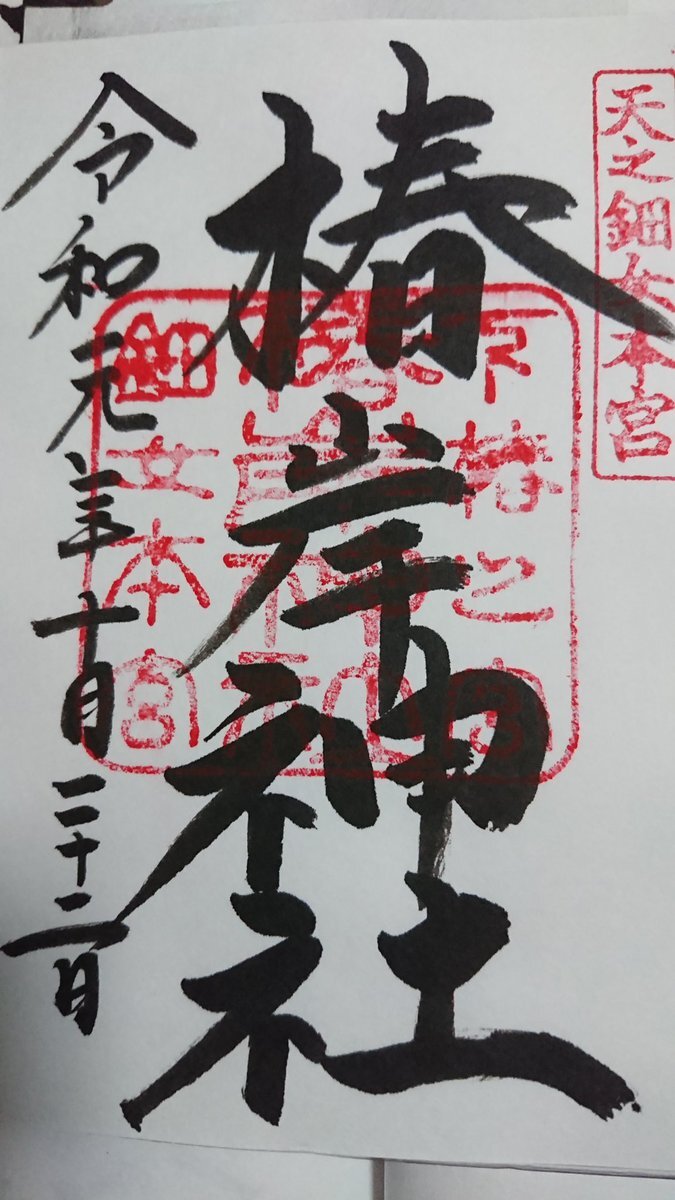 天之鈿女本宮
椿岸神社
下椿之宮
椿岸神社
鈿女本宮
令和元年十月二十二日